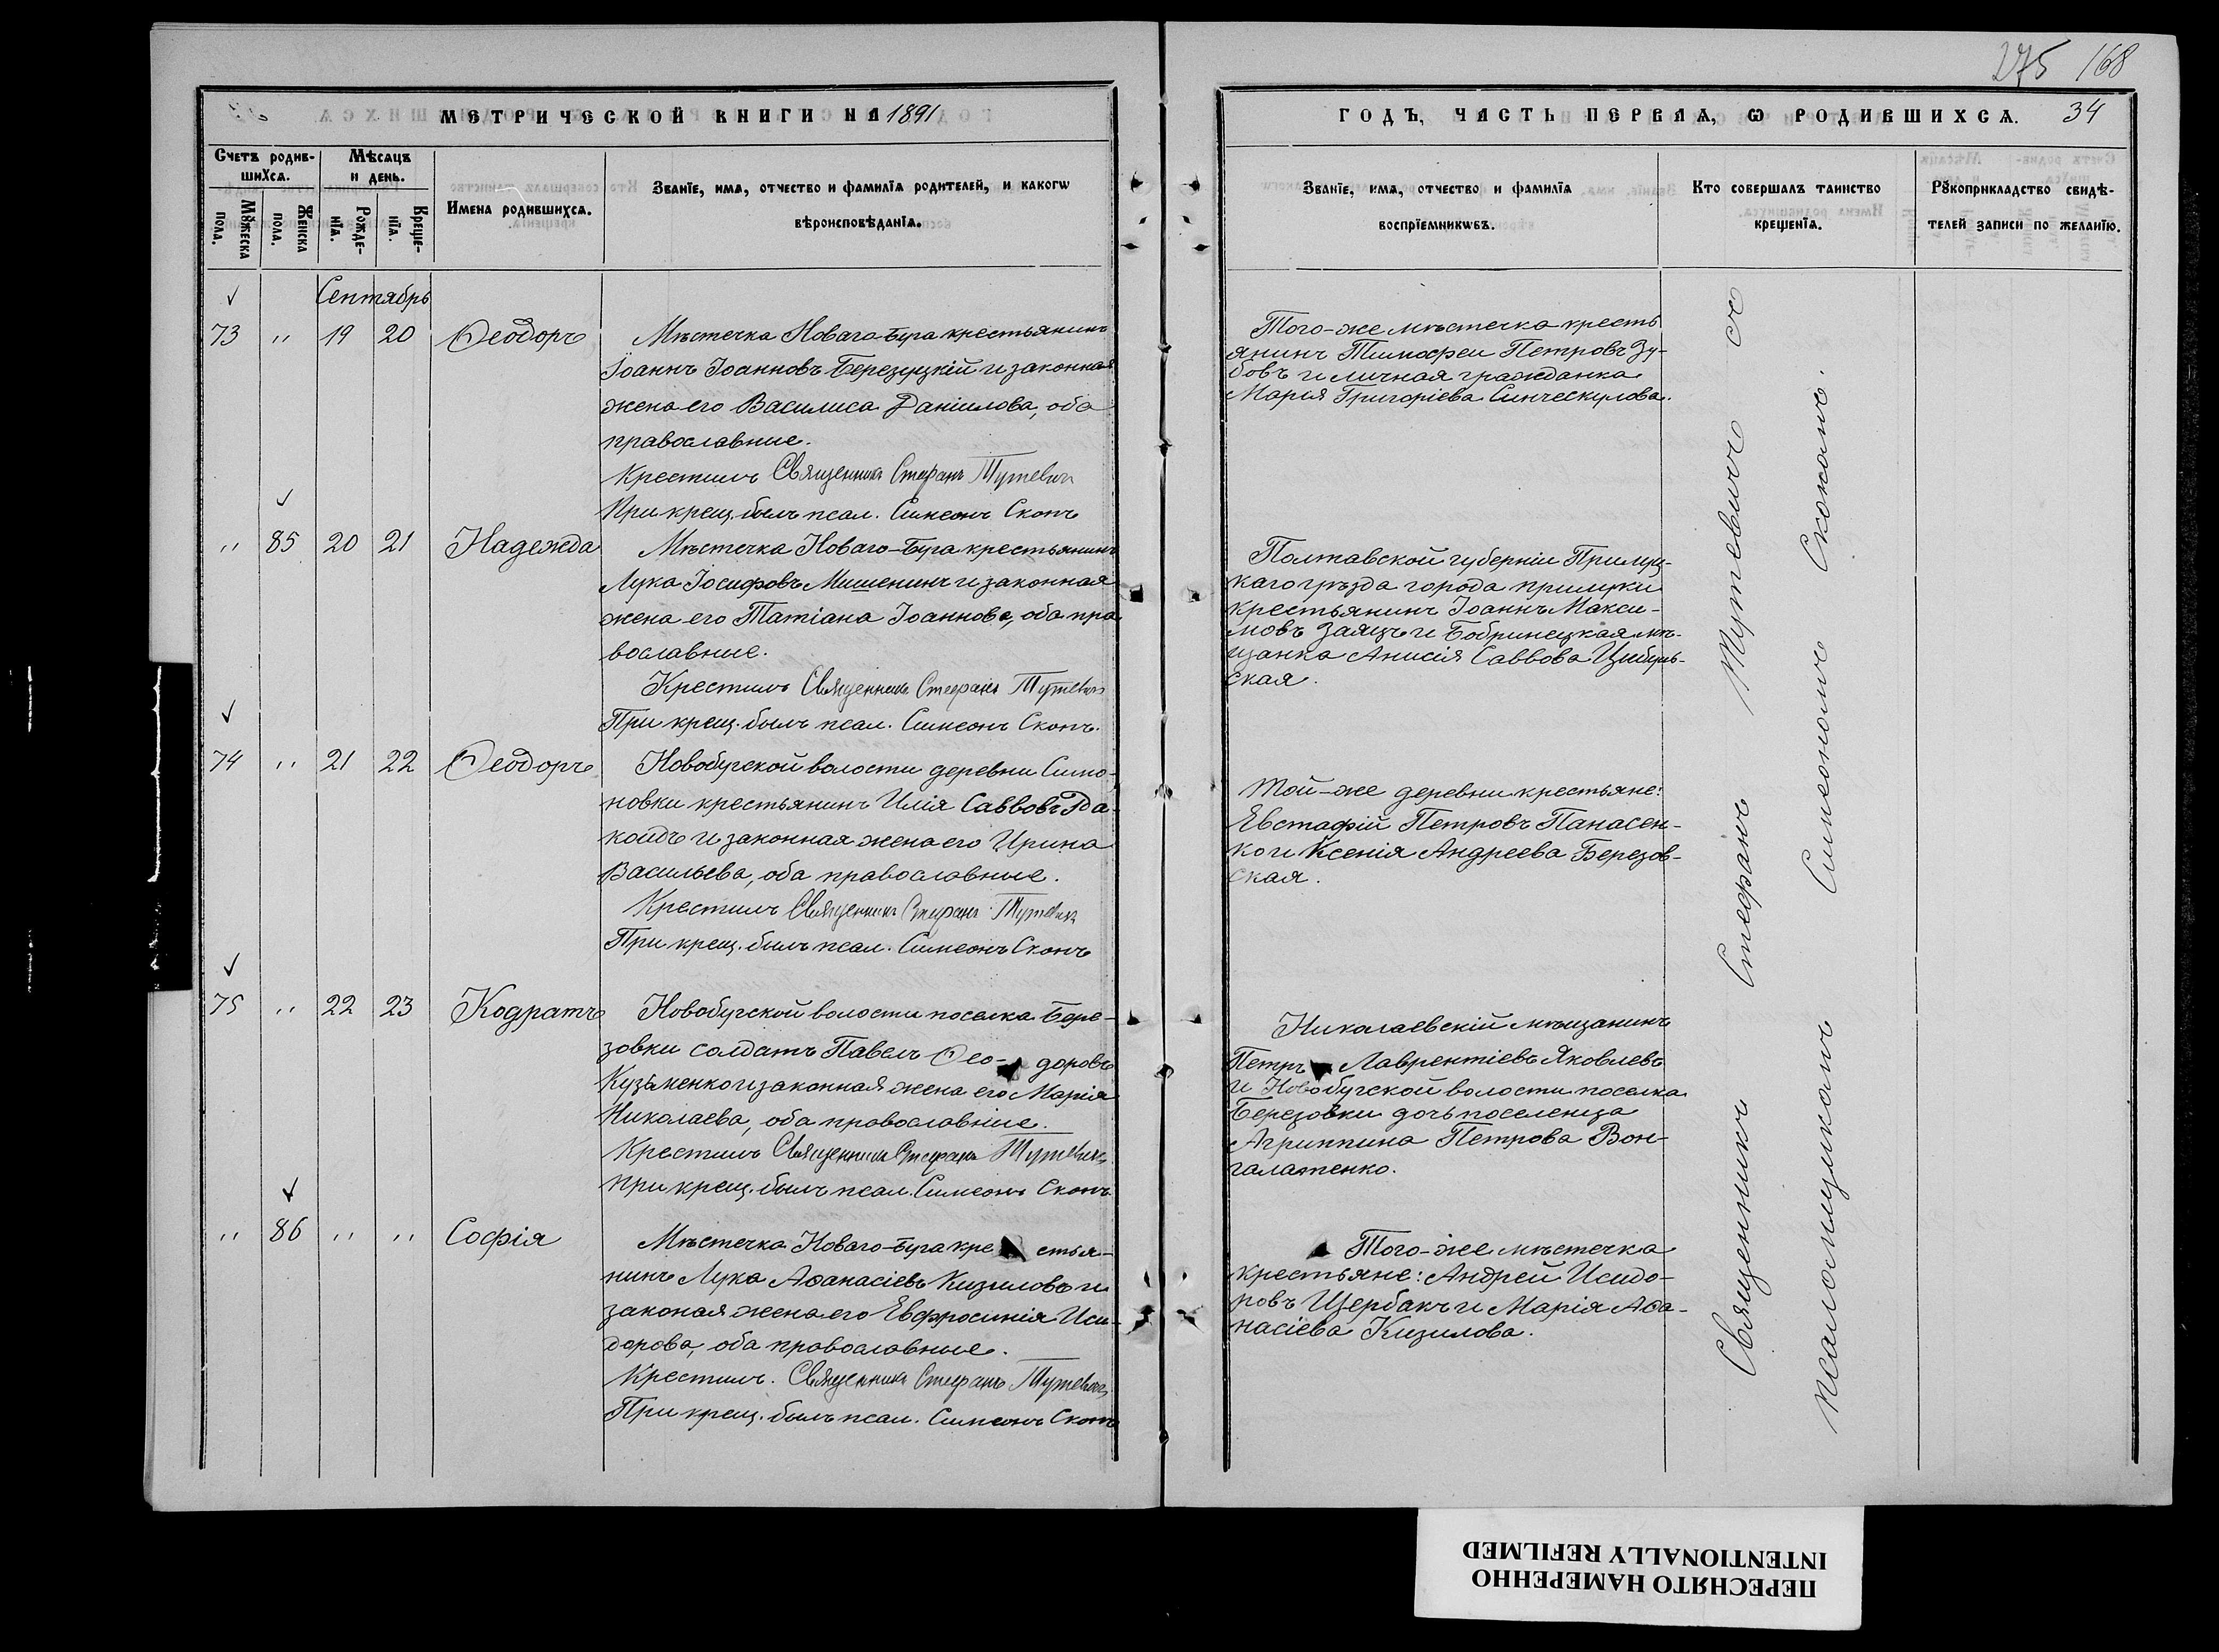 275 168
МЕТРИЧЕСКОЙ КНИГИ НА 1891
ГОДЪ, ЧАСТЬ ПЕРВАЯ, Ѡ РОДИВШИХСѦ. 34
Счетъ родив-
шихсѧ.
Мѣсѧцъ
и день.
Мꙋжеска
пола.
Женска
пола.
Рожде-
нїѧ.
Креще-
нїѧ.
Имена родившихсѧ.
Званїе, имѧ, отчество и фамилїѧ родителей, и какогѡ
вѣроисповѣданїѧ.
Званїе, имѧ, отчество и фамилїѧ
воспрїемникѡвъ.
Кто совершалъ таинство
крещенїѧ.
Рꙋкоприкладство свидѣ-
телей записи по желанїю.
Сентябрь
73 " 19 20 Ѳеодоръ
Мѣстечка Новаго-Буга крестьянинъ
Іоаннъ Іоанновъ Березуцкій и законная
жена его Василиса Даніилова, оба
православные.
Крестилъ Священникъ Стефанъ Тутевичъ
При крещ. былъ псал. Симеонъ Скопъ
Того-же мѣстечка кресть
янинъ Тимофеи Петровъ Зу-
бовъ и личная гражданка
Марія Григоріева Синческулова.
" 85 20 21 Надежда
Мѣстечка Новаго-Буга крестьянинъ
Лука Іосифовъ Мишенинъ и законная
жена его Татіана Іоаннова, оба пра
вославные.
Крестилъ Священникъ Стефанъ Тутевичъ
При крещ. былъ псал. Симеонъ Скопъ.
Полтавской губерніи Прилуц-
каго уѣзда города прилуки
крестьянинъ Іоаннъ Макси-
мовъ Заяцъ и Бобринецкая мѣ-
щанка Анисія Саввова Цибуль-
ская.
74 " 21 22 Ѳеодоръ
Новобугской волости деревни Симо-
новки крестьянинъ Илія Саввовъ
и законная жена его Ирина
Васильева, оба православные.
Крестилъ Священникъ Стефанъ Тутевичъ
При крещ. былъ псал. Симеонъ Скопъ
Той-же деревни крестьяне:
Евстафій Петровъ Панасен-
ко и Ксенія Андреева Березов-
ская.
75 " 22 23 Кодратъ
Новобугской волости поселка Бере-
зовки солдатъ Павелъ Ѳео- доровъ
Кузьменко и законная жена его Марія
Николаева, оба православные.
Крестилъ Священникъ Стефанъ Тутевичъ.
при крещ. былъ псал. Симеонъ Скопъ.
Николаевскій мѣщанинъ
Петръ Лаврентіевъ Яковлевъ
и Новобугской волости поселка
Березовки дочь поселенца
Агриппина Петрова Вон-
галатенко.
" 86 " " Софія
Мѣстечка Новаго-Буга кре стья-
нинъ Лука Аѳанасіевъ Кизиловъ и
законая жена его Евфросинія Иси-
дорова, оба православные.
Крестилъ. Священникъ Стефанъ Тутевичъ.
При крещ. былъ псал. Симеонъ Скопъ
Того-же мѣстечка
крестьяне: Андрей Исидо-
ровъ Щербакъ и Марія Аѳа-
насіева Кизилова.
Священникъ Стефанъ Тутевичъ съ
псаломщикомъ Симеономъ Скопомъ.
ПЕРЕСНЯТО НАМЕРЕННО
INTENTIONALLY REFILMED